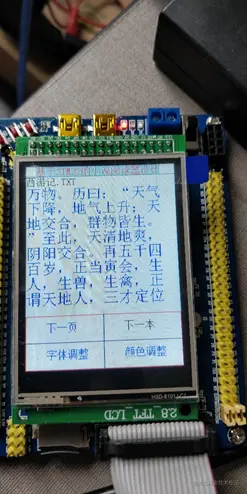 西游记.TXT
万物。历曰：“天气
下降，地气上升；天
地交合，群物皆生。
”至此，天清地爽，
阴阳交合。再五千四
百岁，正当寅会，生
人，生兽，生禽，正
谓天地人，三才定位
下一页
下一本
字体调整
颜色调整
2.8 TFT LCD